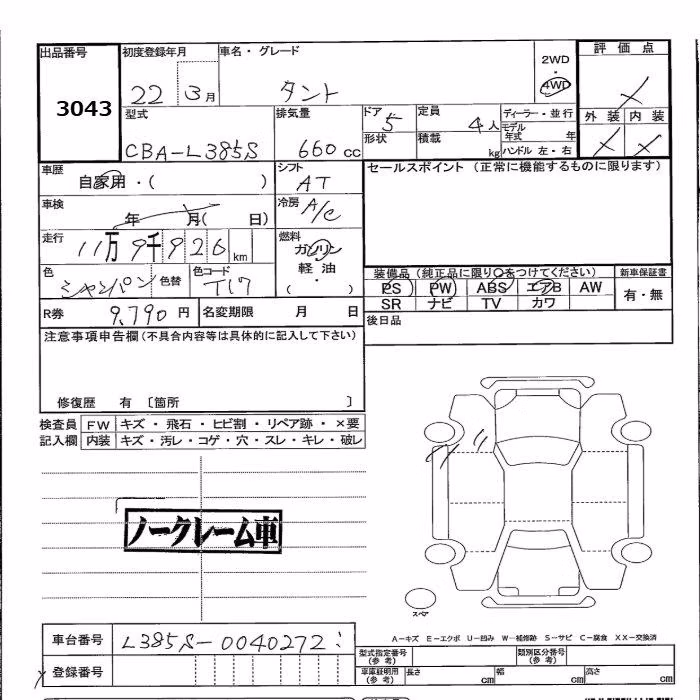 出品番号 初度登録年月 車名・グレード 評価点
3043 22 3月 タント 2WD 4WD
型式 排気量 ドア 5 定員 4人 ディーラー・並行 外装 内装
CBA-L385S 660cc 形状 積載 kg モデル年式 年 ハンドル 左・右
車歴 自家用・( ) シフト AT セールスポイント (正常に機能するものに限ります)
車検 年 月( 日) 冷房 A/C
走行 11万9千926km 燃料 ガソリン 軽油 ・ ( )
色 シャンパン 色替 色コード T17 装備品 (純正品に限り○をつけてください) 新車保証書
PS PW ABS エアB AW 有・無
R券 9,790円 名変期限 月 日 SR ナビ TV カワ
注意事項申告欄(不具合内容等は具体的に記入して下さい) 後日品
修復歴 有 〔箇所 〕
検査員 FW キズ・飛石・ヒビ割・リペア跡・×要
記入欄 内装 キズ・汚レ・コゲ・穴・スレ・キレ・破レ
ノークレーム車
スペア
A-キズ E-エクボ U-凹み W-補修跡 S-サビ C-腐食 XX-交換済
車台番号 L385S-0040272
型式指定番号(参考) 類別区分番号(参考)
登録番号 車庫証明用(参考) 長さ cm 幅 cm 高さ cm